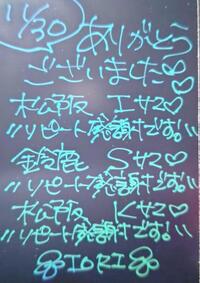 11/30
ありがとう
ございました♡
松阪 Iサン♡
"リピート感謝です!"
鈴鹿 Sサン♡
"リピート感謝です!"
松阪 Kサン♡
"リピート感謝です!"
IORI